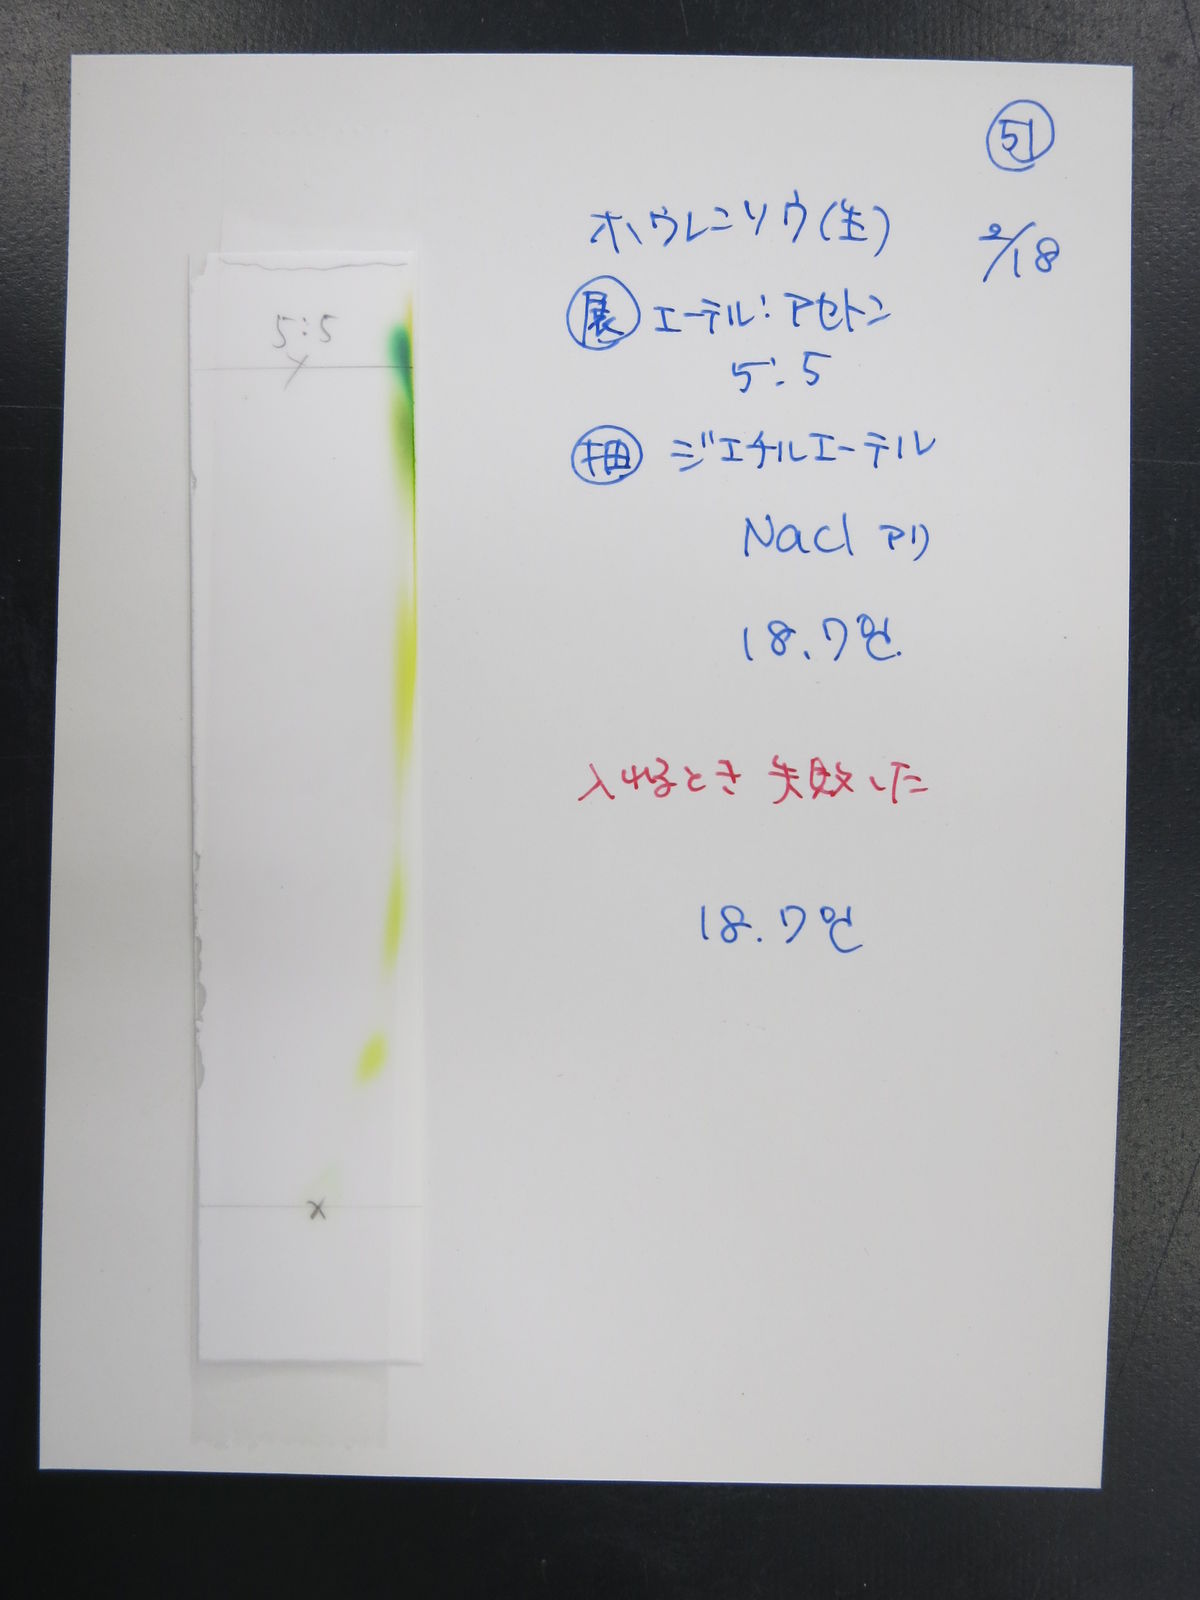 51
ホウレンソウ(生)
2/18
5:5
展 エーテル:アセトン
5:5
抽 ジエチルエーテル
NaCl アリ
18.7℃
入れるとき 失敗した
18.7℃
×